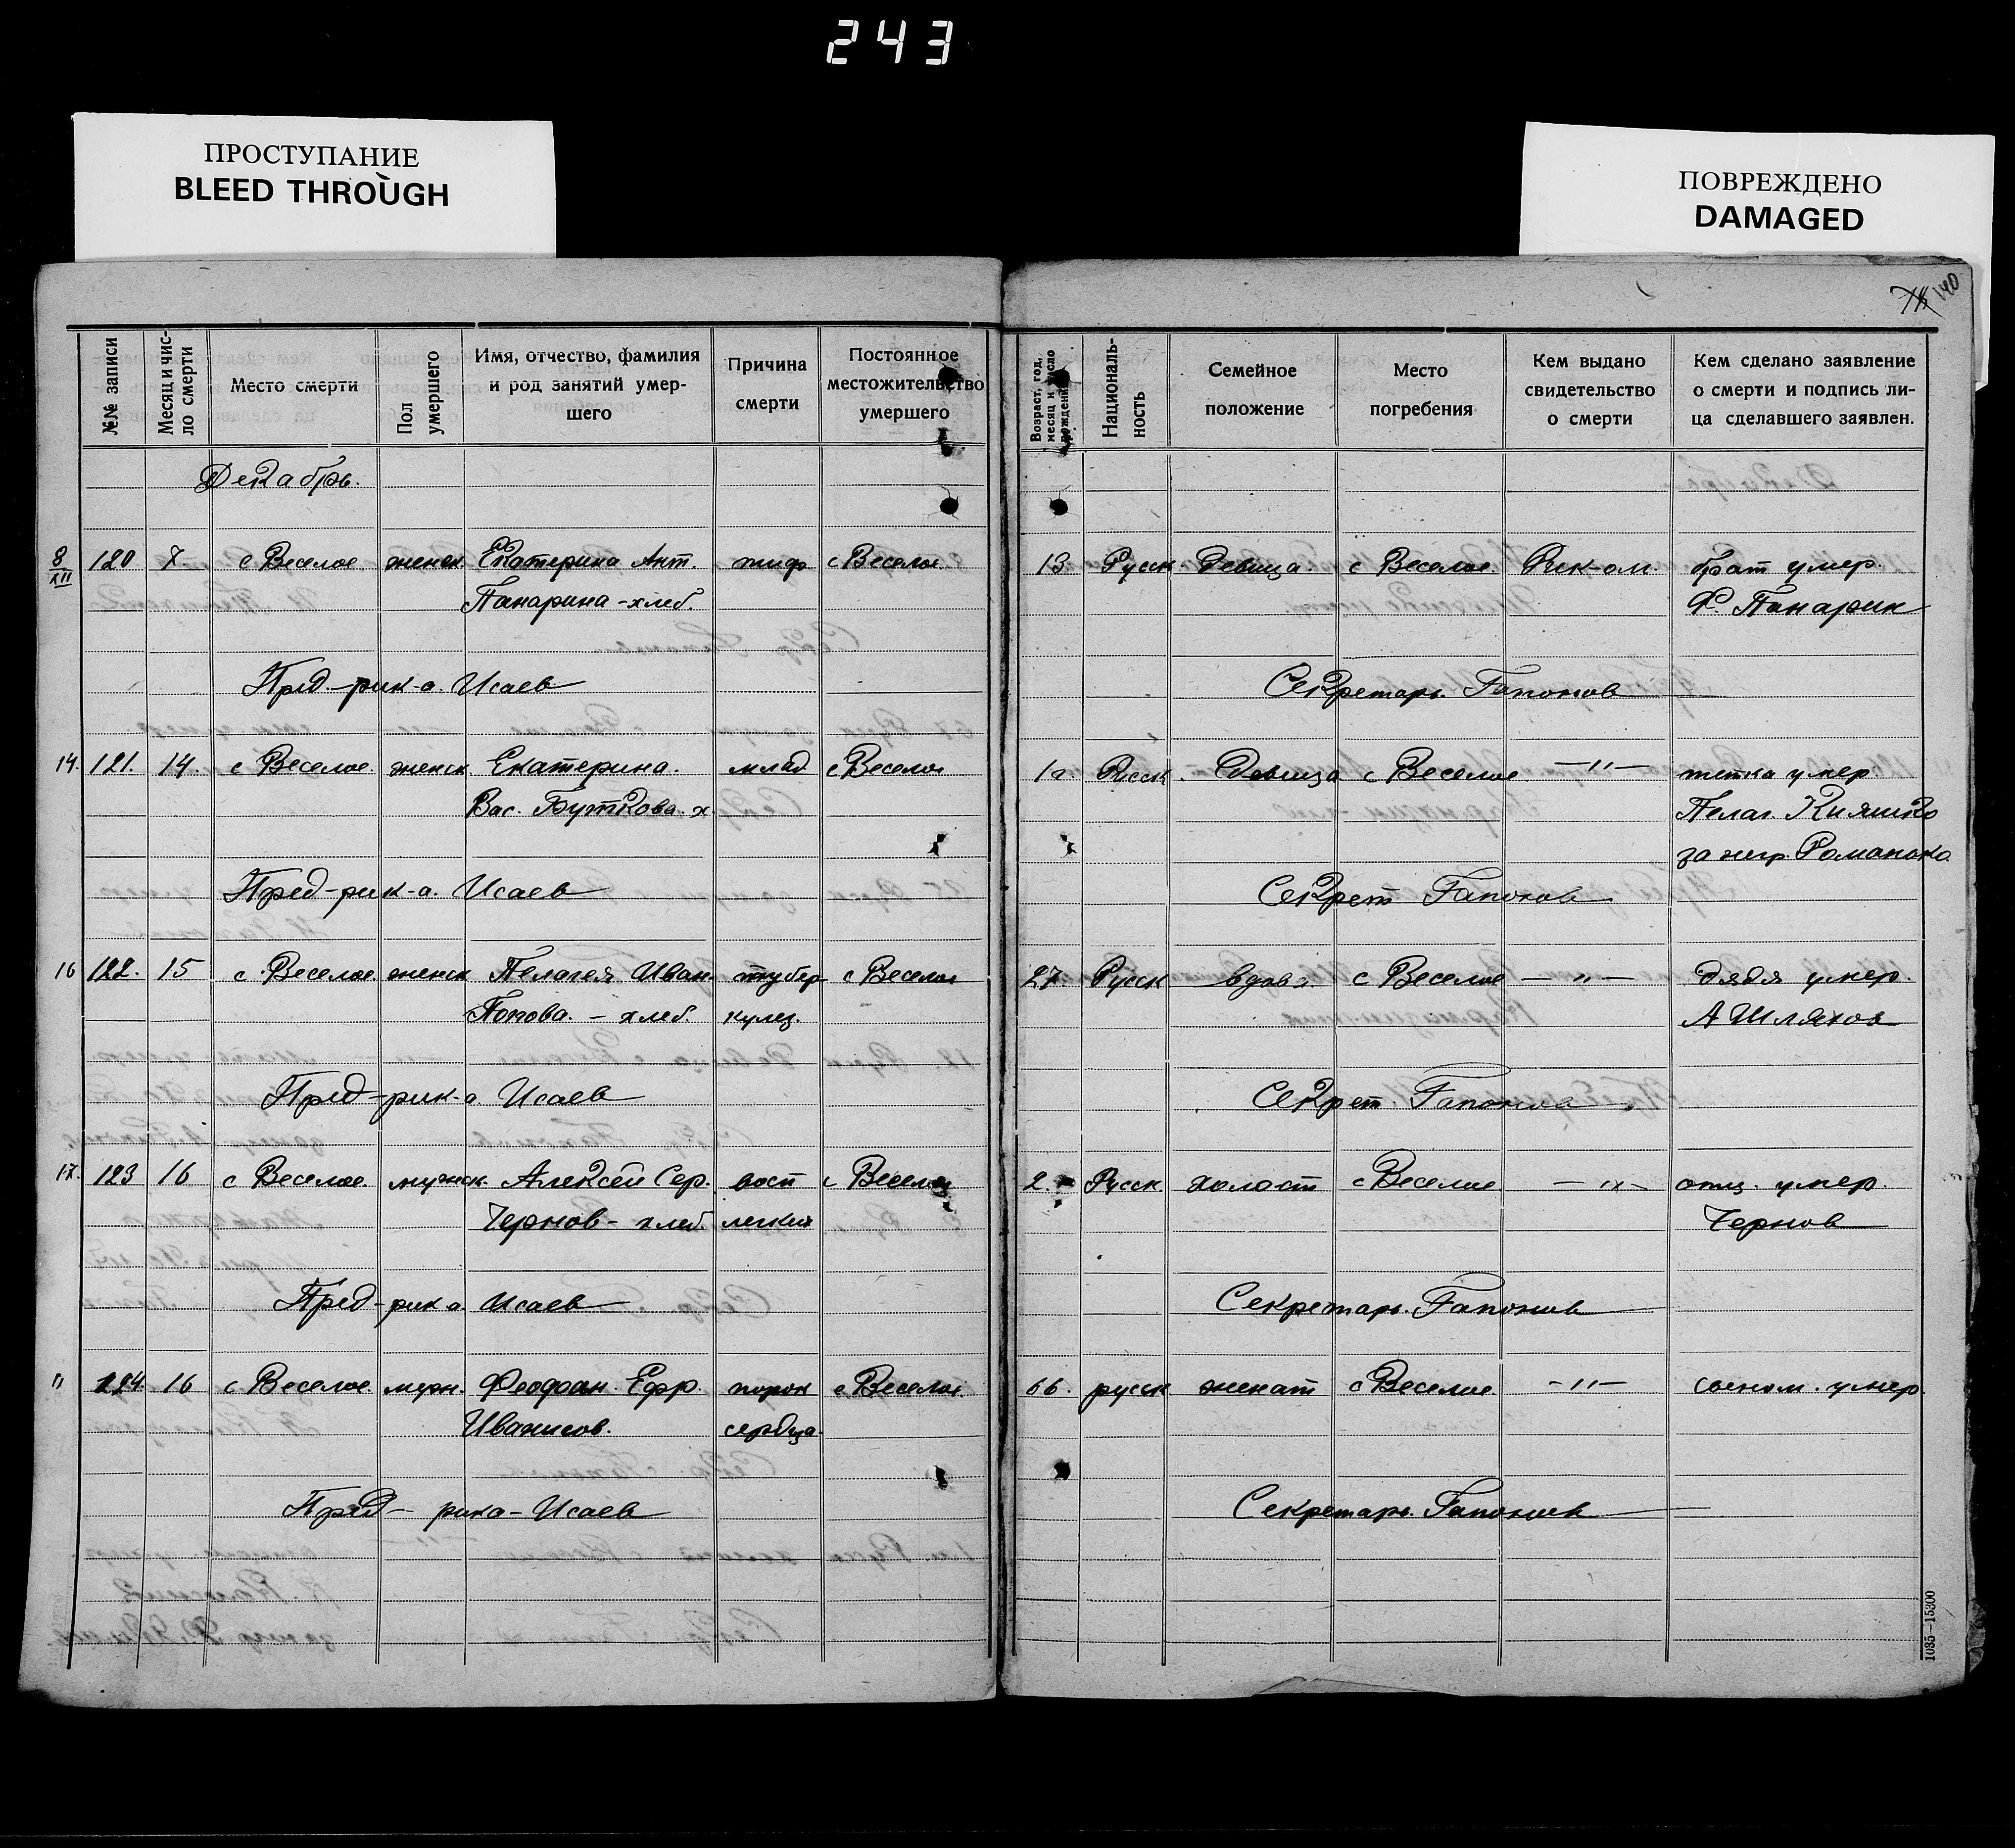 243
ПРОСТУПАНИЕ
BLEED THROUGH
ПОВРЕЖДЕНО
DAMAGED
140
№№ записи
Месяц и чис-
ло смерти
Место смерти
Пол
умершего
Имя, отчество, фамилия
и род занятий умер-
шего
Причина
смерти
Постоянное
местожительство
умершего
Возраст, год,
месяц и число
рождения
Националь-
ность
Семейное
положение
Место
погребения
Кем выдано
свидетельство
о смерти
Кем сделано заявление
о смерти и подпись ли-
ца сделавшего заявлен.
Декабрь.
8/XII 120 7. с Веселое женск. Екатерина Ант. тиф с Веселое 13 Русск девица. с Веселое Рик-ом. брат умер.
Панарина - хлеб. Ф. Панарин
Пред.-рик-а. Исаев Секретарь. Гапонов
14. 121. 14 с Веселое. женск Екатерина. млад с Веселое 1 г. Русск. девица с Веселое — " — тетка умер.
Вас. Буткова. х. Пелаг. Кияшко
за негр. Романоко
Пред-рик-а. Исаев Секрет Гапонов
16 122. 15 с Веселое женск Пелагея Иван. тубер с Веселое 27. Русск вдова с Веселое — " — дядя умер.
Попова. - хлеб. кулез. А Шляхов
Пред-рик-а Исаев Секрет. Гапонов
17. 123 16 с Веселое. мужск. Алексей Сер. восп с Веселое 2. Русск холост с Веселое — " — отц. умер.
Чернов - хлеб. легких Чернов
Пред-рик а. Исаев Секретарь. Гапонов
" 124. 16 с Веселое мужн. Феофан Ефр. порок с Веселое. 66. русск женат с Веселое — " — сыном. умер.
Иванисов. сердца.
Пред- рика- Исаев Секретарь. Гапонов
1035—15300